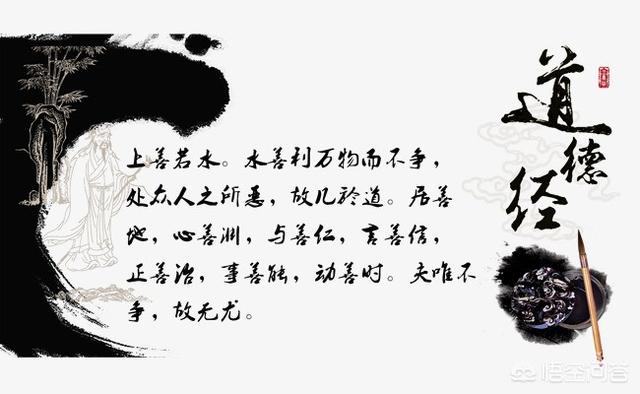 道德经
上善若水。水善利万物而不争，
处众人之所恶，故几於道。居善
地，心善渊，与善仁，言善信，
正善治，事善能，动善时。夫唯不
争，故无尤。
悟空问答